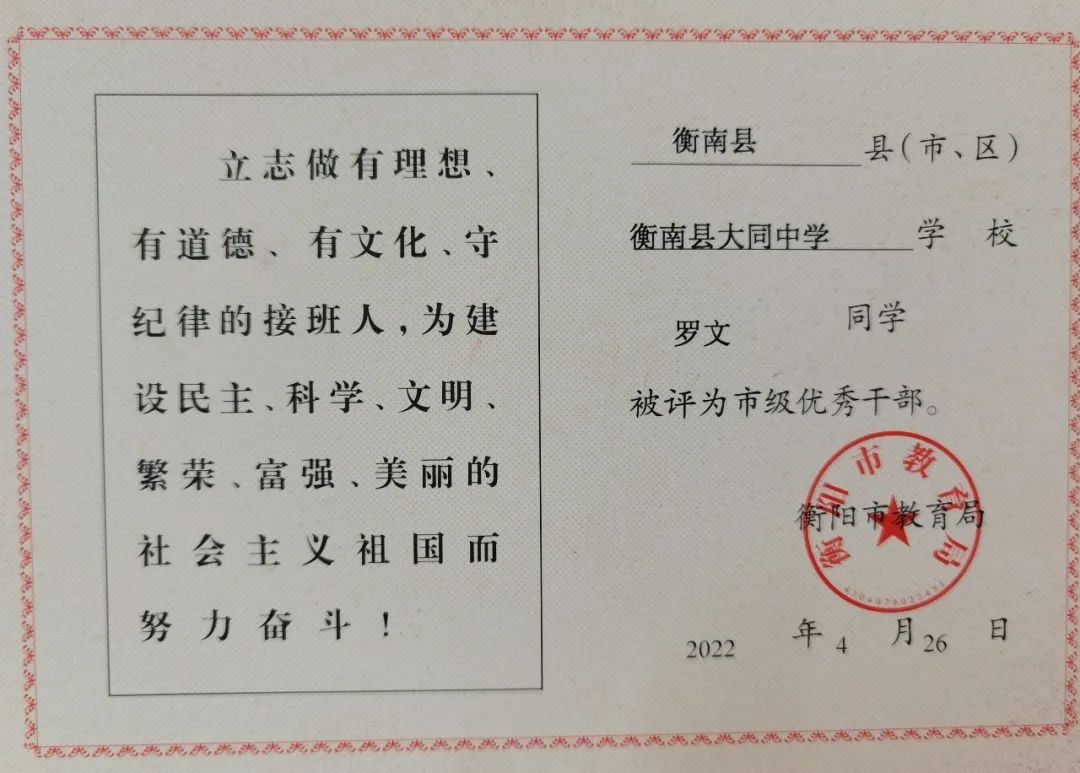 立志做有理想、
有道德、有文化、守
纪律的接班人，为建
设民主、科学、文明、
繁荣、富强、美丽的
社会主义祖国而
努力奋斗！
衡南县 县（市、区）
衡南县大同中学 学校
罗文 同学
被评为市级优秀干部。
衡阳市教育局
衡阳市教育局
2022 年 4 月 26 日